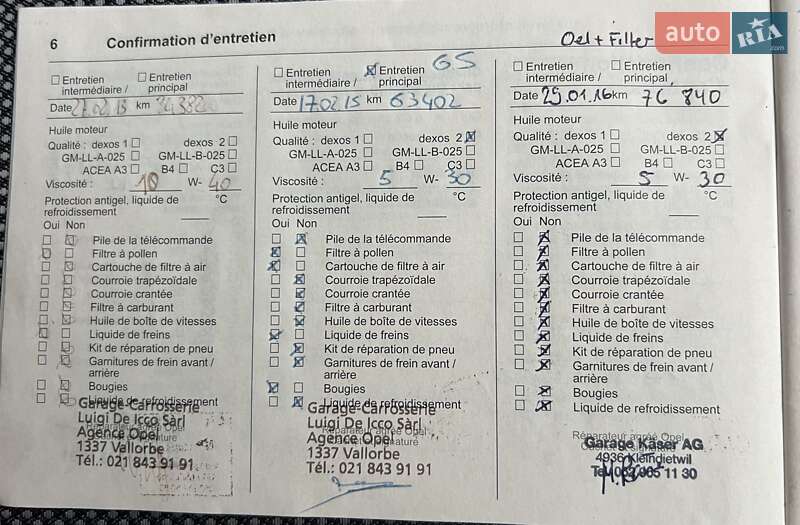 6 Confirmation d'entretien
Oel + Filter
auto RIA.com
Entretien intermédiaire / Entretien principal
Date 27.02.13 km
Huile moteur
Qualité : dexos 1 dexos 2
GM-LL-A-025 GM-LL-B-025
ACEA A3 B4 C3
Viscosité : 10 W- 40
Protection antigel, liquide de
refroidissement °C
Oui Non
Pile de la télécommande
Filtre à pollen
Cartouche de filtre à air
Courroie trapézoïdale
Courroie crantée
Filtre à carburant
Huile de boîte de vitesses
Liquide de freins
Kit de réparation de pneu
Garnitures de frein avant /
arrière
Bougies
Liquide de refroidissement
Garage-Carrosserie
Luigi De Icco Sàrl
Agence Opel
1337 Vallorbe
Tél.: 021 843 91 91
GS
Entretien intermédiaire / Entretien principal
Date 17.02.15 km 63402
Huile moteur
Qualité : dexos 1 dexos 2
GM-LL-A-025 GM-LL-B-025
ACEA A3 B4 C3
Viscosité : 5 W- 30
Protection antigel, liquide de
refroidissement °C
Oui Non
Pile de la télécommande
Filtre à pollen
Cartouche de filtre à air
Courroie trapézoïdale
Courroie crantée
Filtre à carburant
Huile de boîte de vitesses
Liquide de freins
Kit de réparation de pneu
Garnitures de frein avant /
arrière
Bougies
Liquide de refroidissement
Garage-Carrosserie
Luigi De Icco Sàrl
Réparateur agréé Opel
Agence Opel
1337 Vallorbe
Tél.: 021 843 91 91
Entretien intermédiaire / Entretien principal
Date 29.01.16 km 76 840
Huile moteur
Qualité : dexos 1 dexos 2
GM-LL-A-025 GM-LL-B-025
ACEA A3 B4 C3
Viscosité : 5 W- 30
Protection antigel, liquide de
refroidissement °C
Oui Non
Pile de la télécommande
Filtre à pollen
Cartouche de filtre à air
Courroie trapézoïdale
Courroie crantée
Filtre à carburant
Huile de boîte de vitesses
Liquide de freins
Kit de réparation de pneu
Garnitures de frein avant /
arrière
Bougies
Liquide de refroidissement
Réparateur agréé Opel
Garage Käser AG
4936 Kleindietwil